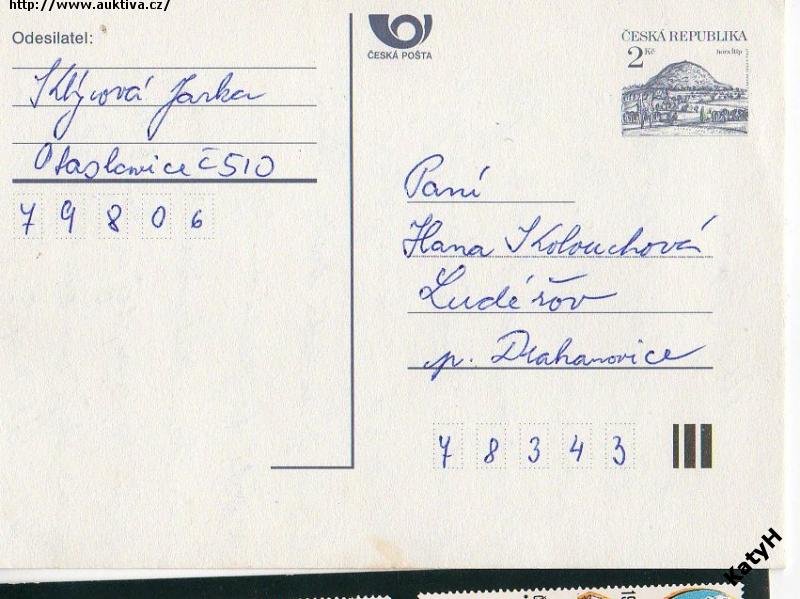 http://www.auktiva.cz/
Odesilatel:
Klýcová Jarka
Otaslavice č 510
79806
ČESKÁ POŠTA
ČESKÁ REPUBLIKA
2 Kč
hora Říp
Paní
Hana Kolouchová
Luděřov
p. Drahanovice
78343
KatyH